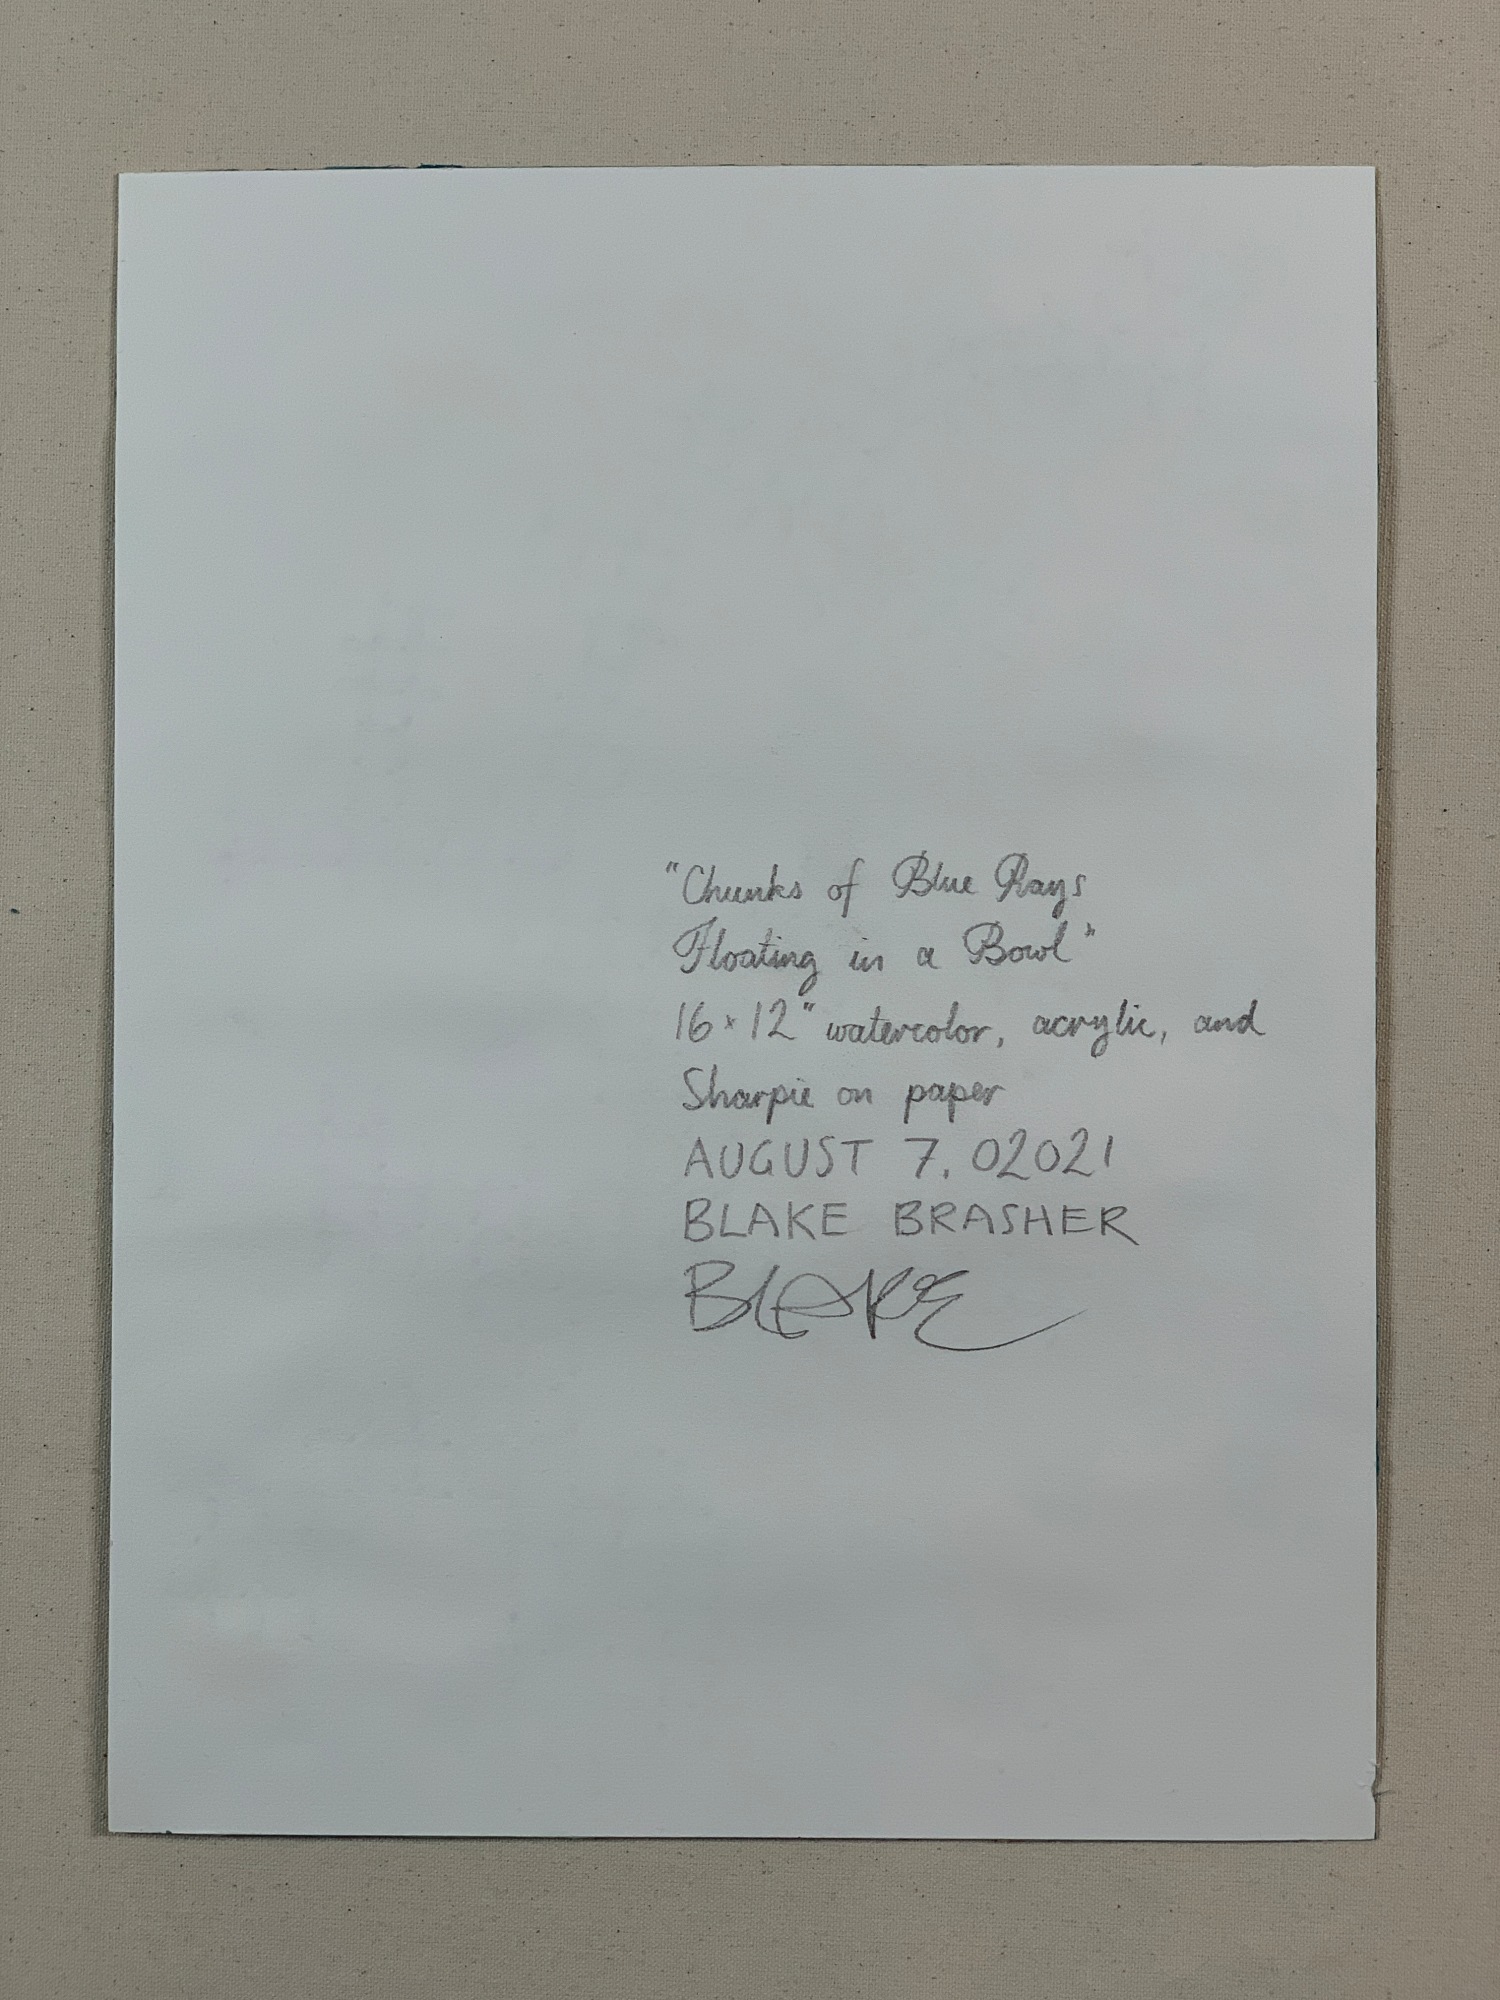 "Chunks of Blue Rays
Floating in a Bowl"
16 × 12" watercolor, acrylic, and
Sharpie on paper
AUGUST 7, 02021
BLAKE BRASHER
BLAKE